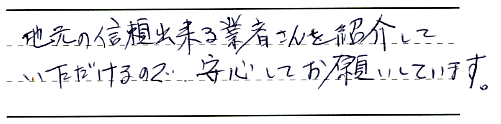 地元の信頼出来る業者さんを紹介して
いただけるので 安心してお願いしています。